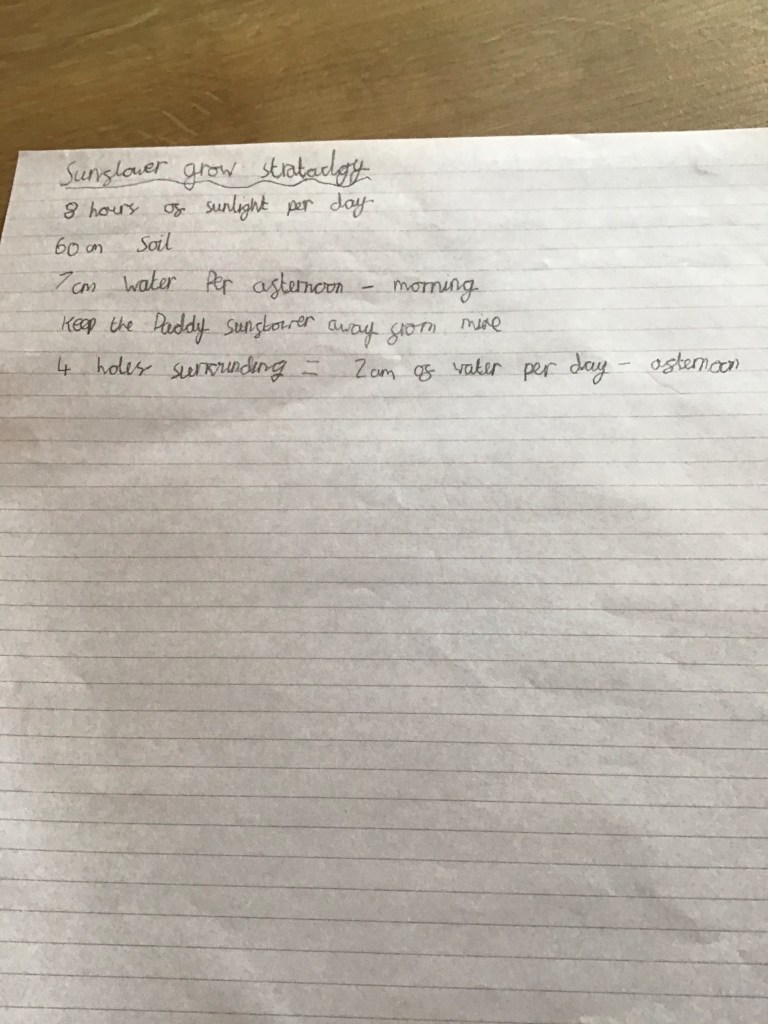 Sunflower grow stratadgy
8 hours of sunlight per day
60cm soil
7cm water Per afternoon - morning
Keep the Daddy sunflower away from mine
4 holes surrounding = 2cm of water per day - afternoon